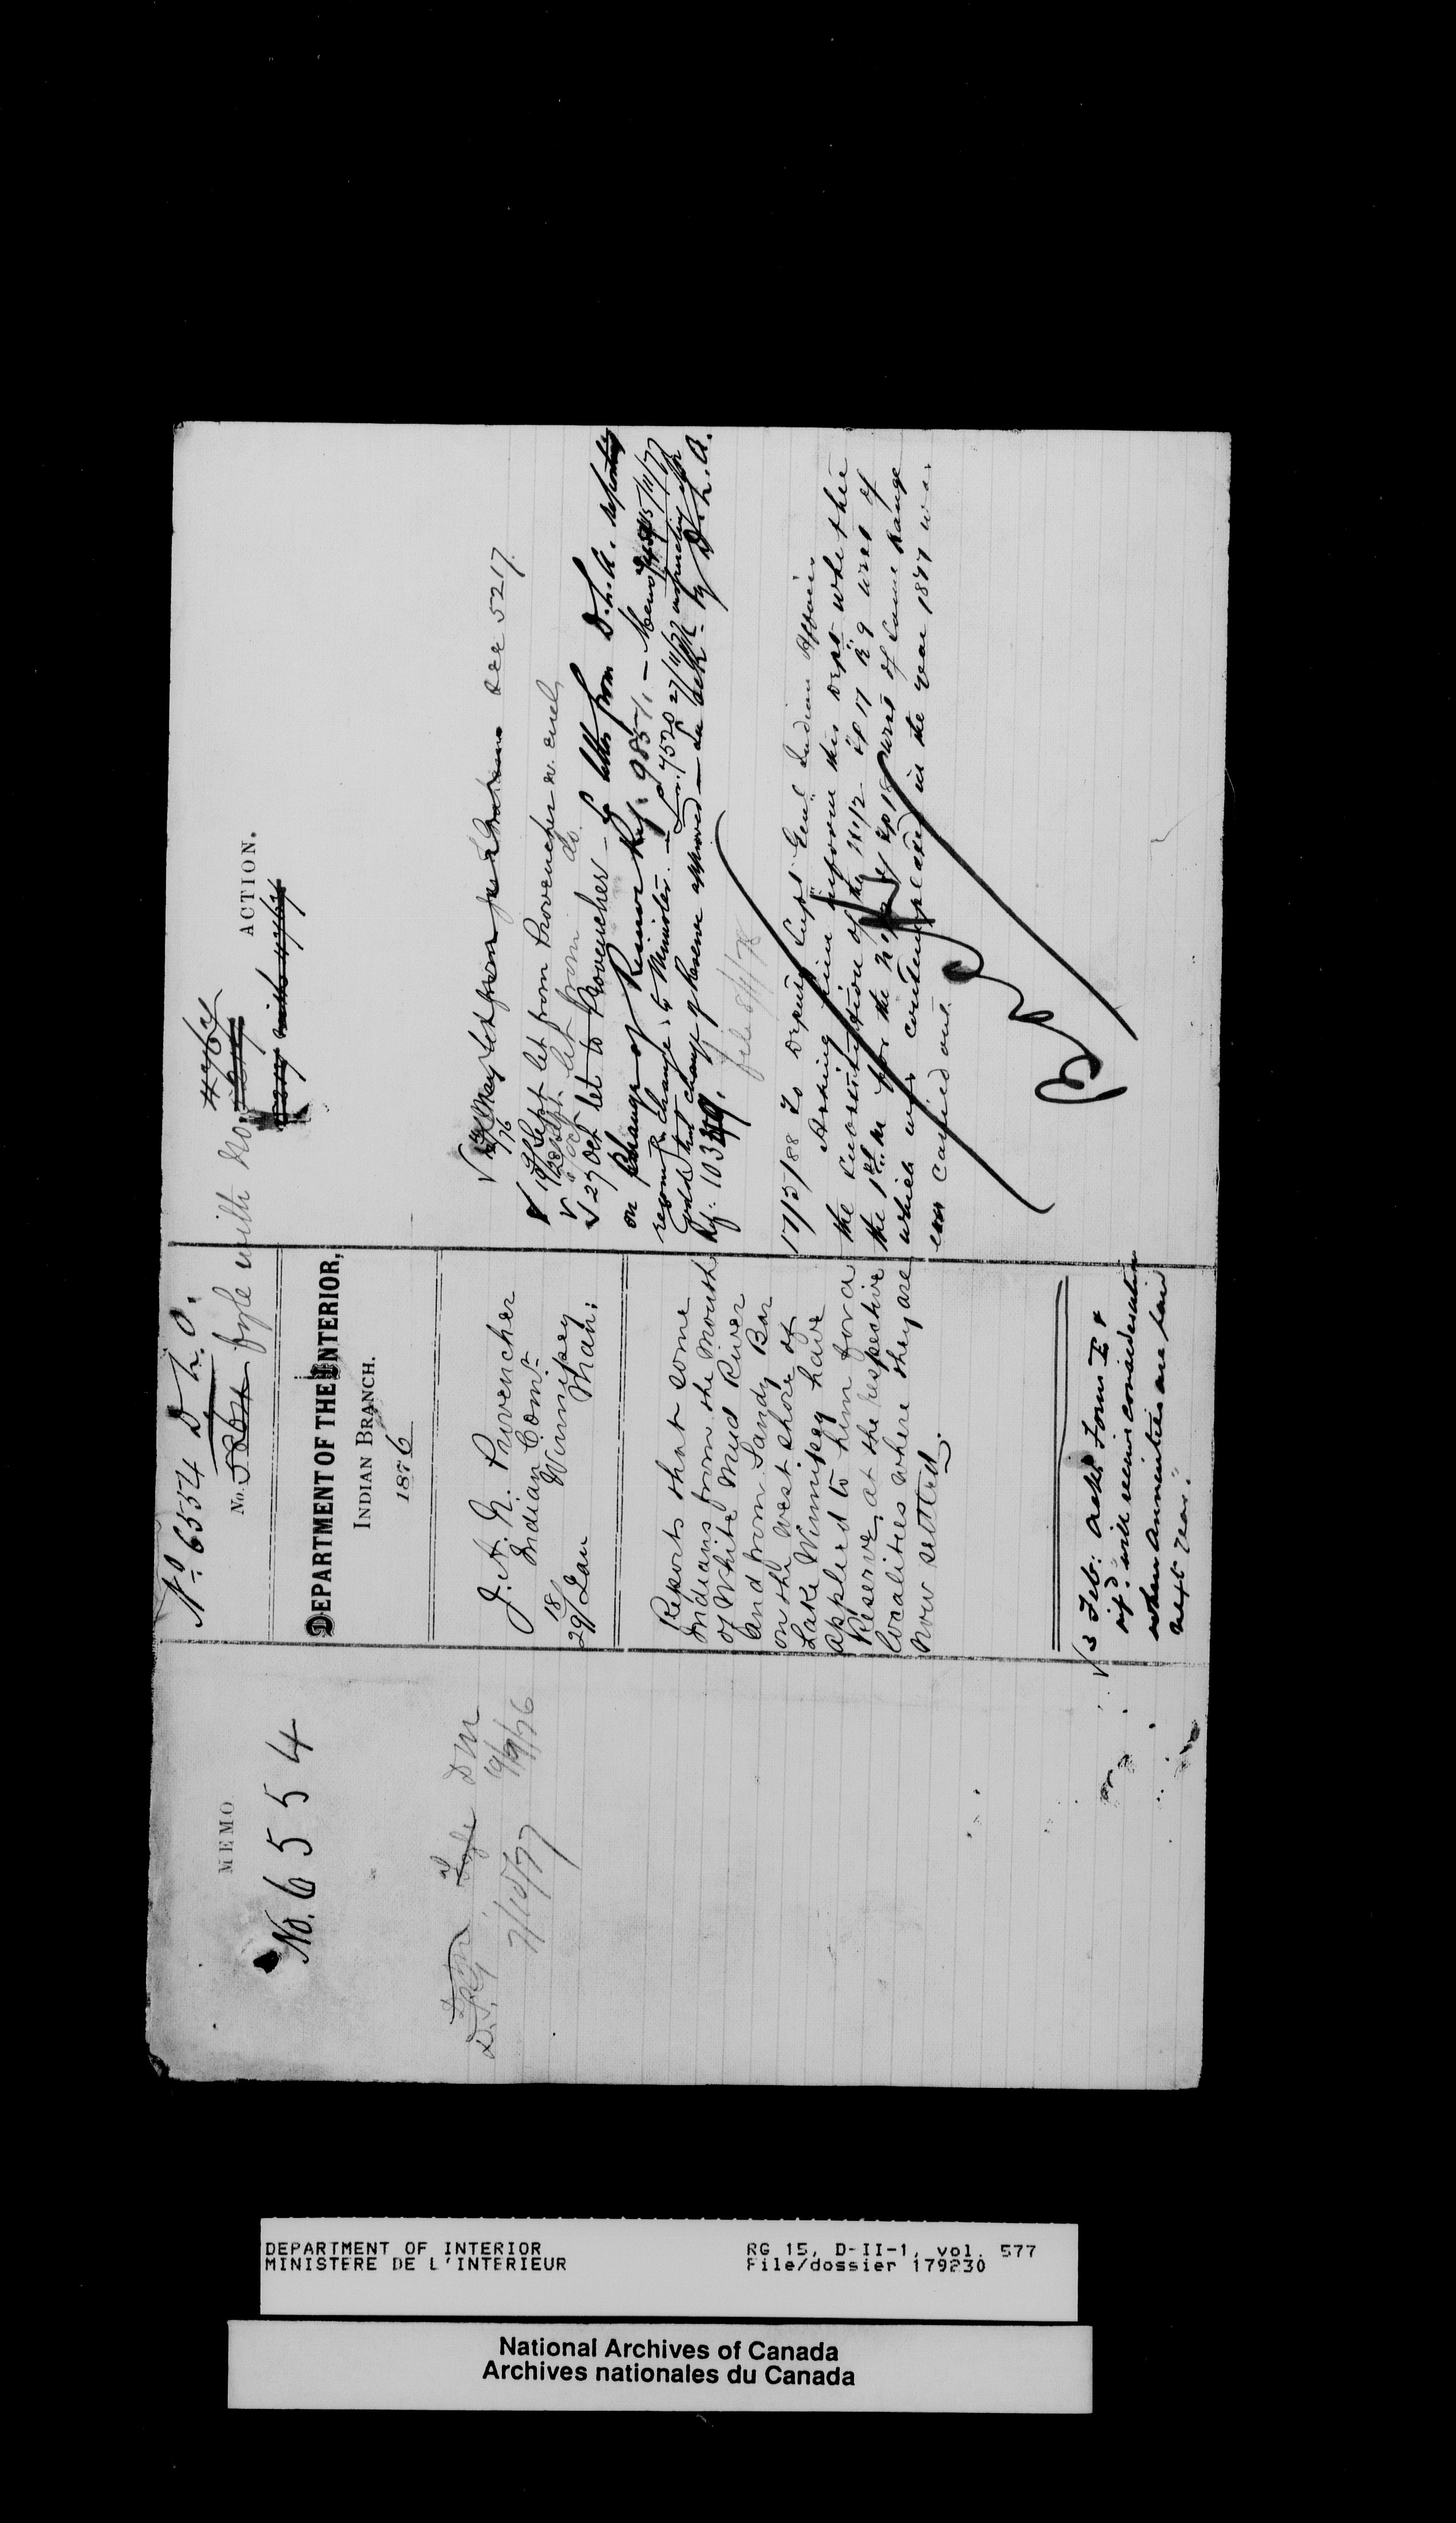 MEMO
No. 6554
D.M.
19/9/76
7/10/77
No. 6554 D.L.O.
No. 5864 fyle with No.
DEPARTMENT OF THE INTERIOR,
INDIAN BRANCH.
1876
J. A. N. Provencher
Indian Comr
Winnipeg
Man:
18/29 Jan
Reports that some
Indians from the Mouth
of White Mud River
and from Sandy Bar
on the West Shore of
Lake Winnipeg have
applied to him for a
Reserve at the respective
localities where they are
now settled.
3 Feb: Ackd Form E &
will receive consideration
when annuities are paid
next year."
ACTION.
4764
5217 with 4764
May Let from Graham see 5217
19 Sept let from Provencher w. encls
Oct let from do.
27 Oct let to Provencher - & letter from D.L.A. reporting
on change of Reserve Ref. 985
recomg change, to Minister.
that change of Reserve approved by D.L.A.
Ref. 10349.
file 8/1/78
17/5/88 To Deputy Supt Genl Indian Affairs
Asking him inform this Dept whether
the substitution of the N 1/2 Tp 17 R 9 west of
the 1st M for the Tp 18 west of same Range
which was contemplated in the year 1877 was
ever carried out.
DEPARTMENT OF INTERIOR
MINISTERE DE L'INTERIEUR
RG 15, D-II-1, vol. 577
File/dossier 179230
National Archives of Canada
Archives nationales du Canada